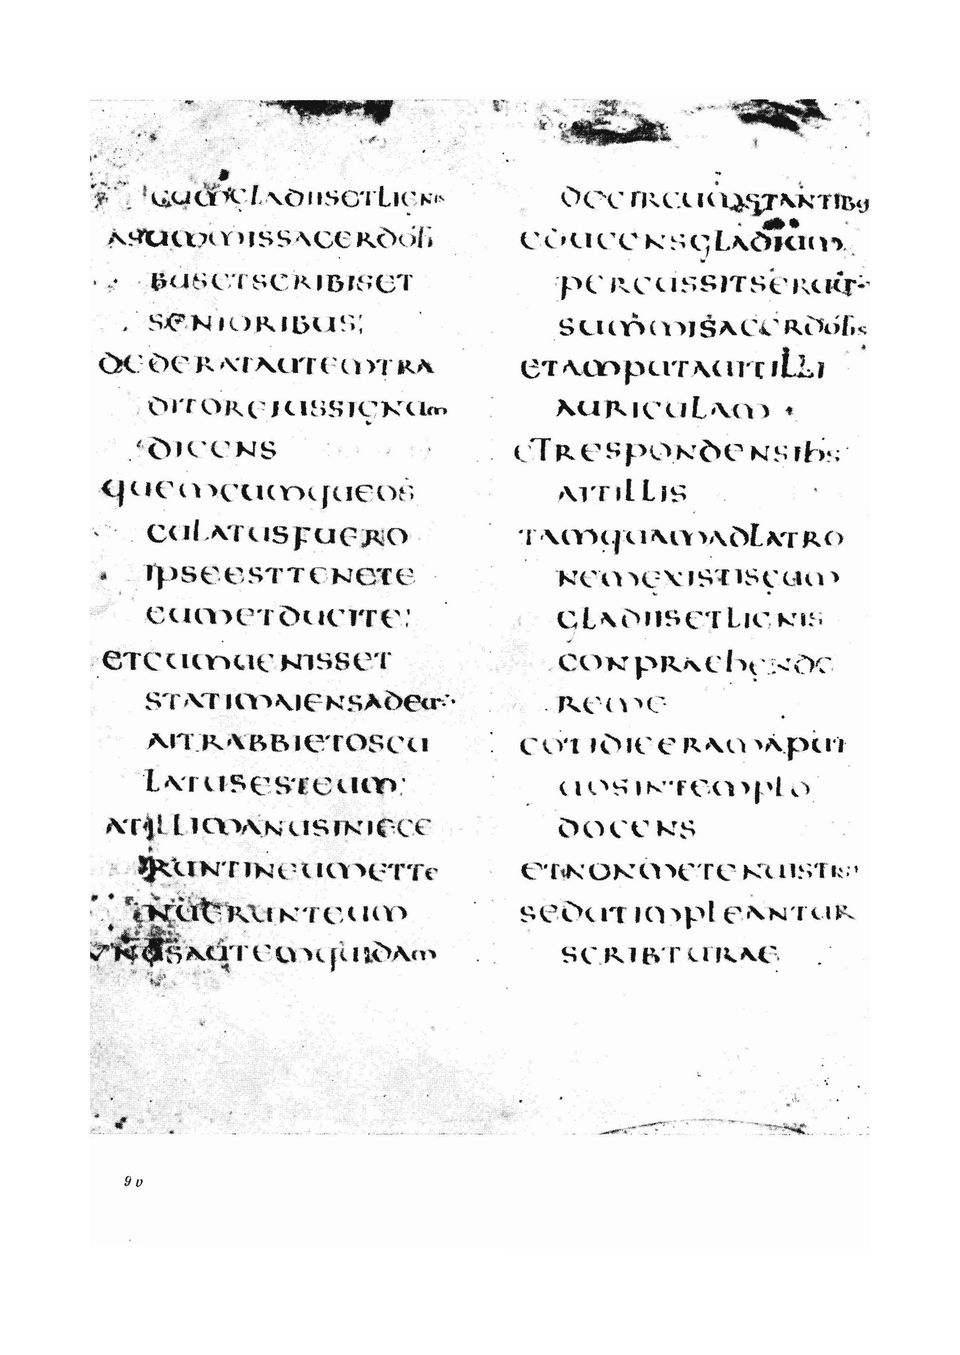 CUMGLADIISETLIGNIS
ASUMMISSACERDOTI
BUSETSCRIBISET
SENIORIBUS;
DEDERATAUTEMTRA
DITOREIUSSIGNUM
DICENS
QUEMCUMQUEOS
CULATUSFUERO
IPSEESTTENETE
EUMETDUCITE;
ETCUMUENISSET
STATIMAIENSADEUM
AITRABBIETOSCU
LATUSESTEUM;
ATILLIMANUSINIECE
RUNTINEUMETTE
NUERUNTEUM
UNUSAUTEMQUIDAM
DECIRCUMSTANTIBUS
EDUCENSGLADIUM
PERCUSSITSERUUM
SUMMISACERDOTIS
ETAMPUTAUITILLI
AURICULAM
ETRESPONDENSIHS
AITILLIS
TAMQUAMADLATRO
NEMEXISTISCUM
GLADIISETLIGNIS
CONPRAEHENDE
REME
COTIDIEERAMAPUT
UOSINTEMPLO
DOCENS
ETNONMETENUISTIS
SEDUTIMPLEANTUR
SCRIBTURAE
9 v